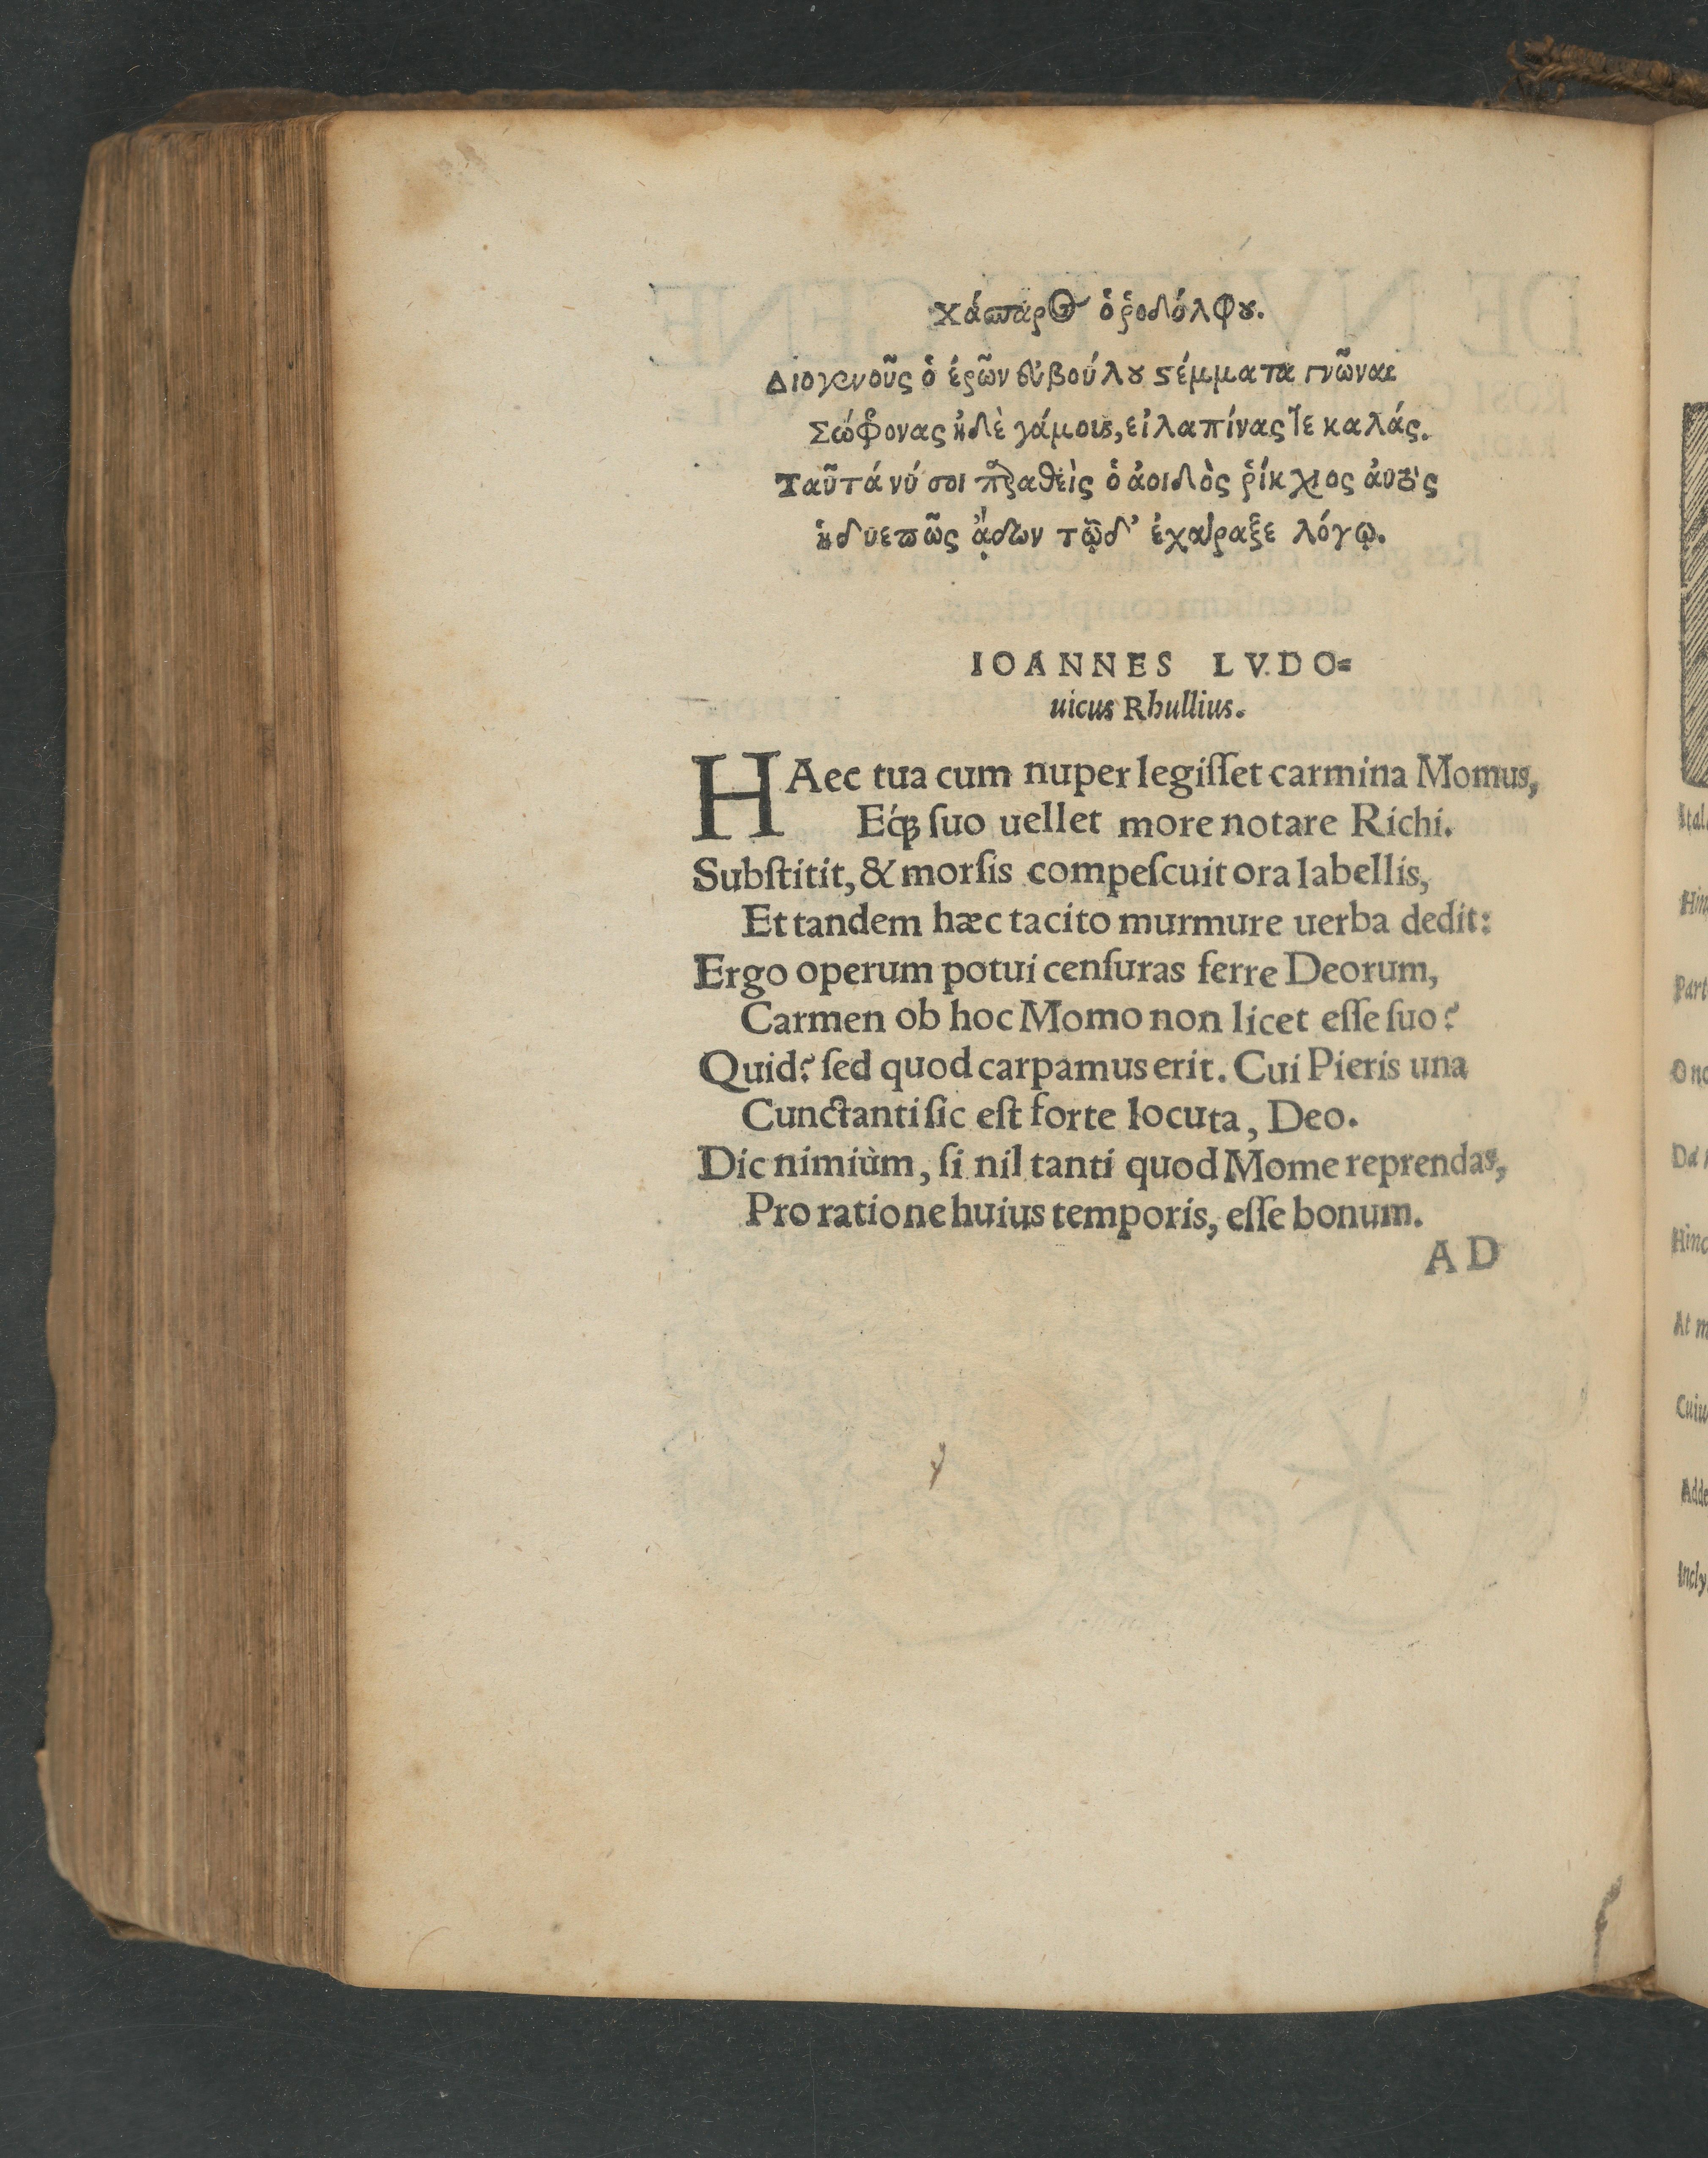 Χάσπαρος ὁ ῥοδόλφου.
Διογενοῦς ὁ ἐρῶν εὐβούλου στέμματα γνῶναι
Σώφρονας ἠδὲ γάμους, εἰλαπίνας τε καλάς.
Ταῦτά νύ σοι ὁ ἀοιδὸς ῥίκχιος
ἡδυεπῶς ᾄδων τῷδ' ἐχάραξε λόγῳ.
IOANNES LVDO=
uicus Rhullius.
HAec tua cum nuper legiſſet carmina Momus,
Eq́ꝫ ſuo uellet more notare Richi.
Subſtitit, & morſis compeſcuit ora labellis,
Et tandem hæc tacito murmure uerba dedit:
Ergo operum potui cenſuras ferre Deorum,
Carmen ob hoc Momo non licet eſſe ſuo?
Quid? ſed quod carpamus erit. Cui Pieris una
Cunctanti ſic eſt forte locuta, Deo.
Dic nimiùm, ſi nil tanti quod Mome reprendas,
Pro ratione huius temporis, eſſe bonum.
AD
Ital
Hin
Part
Hinc
At m
Cuiu
Adde
Incly